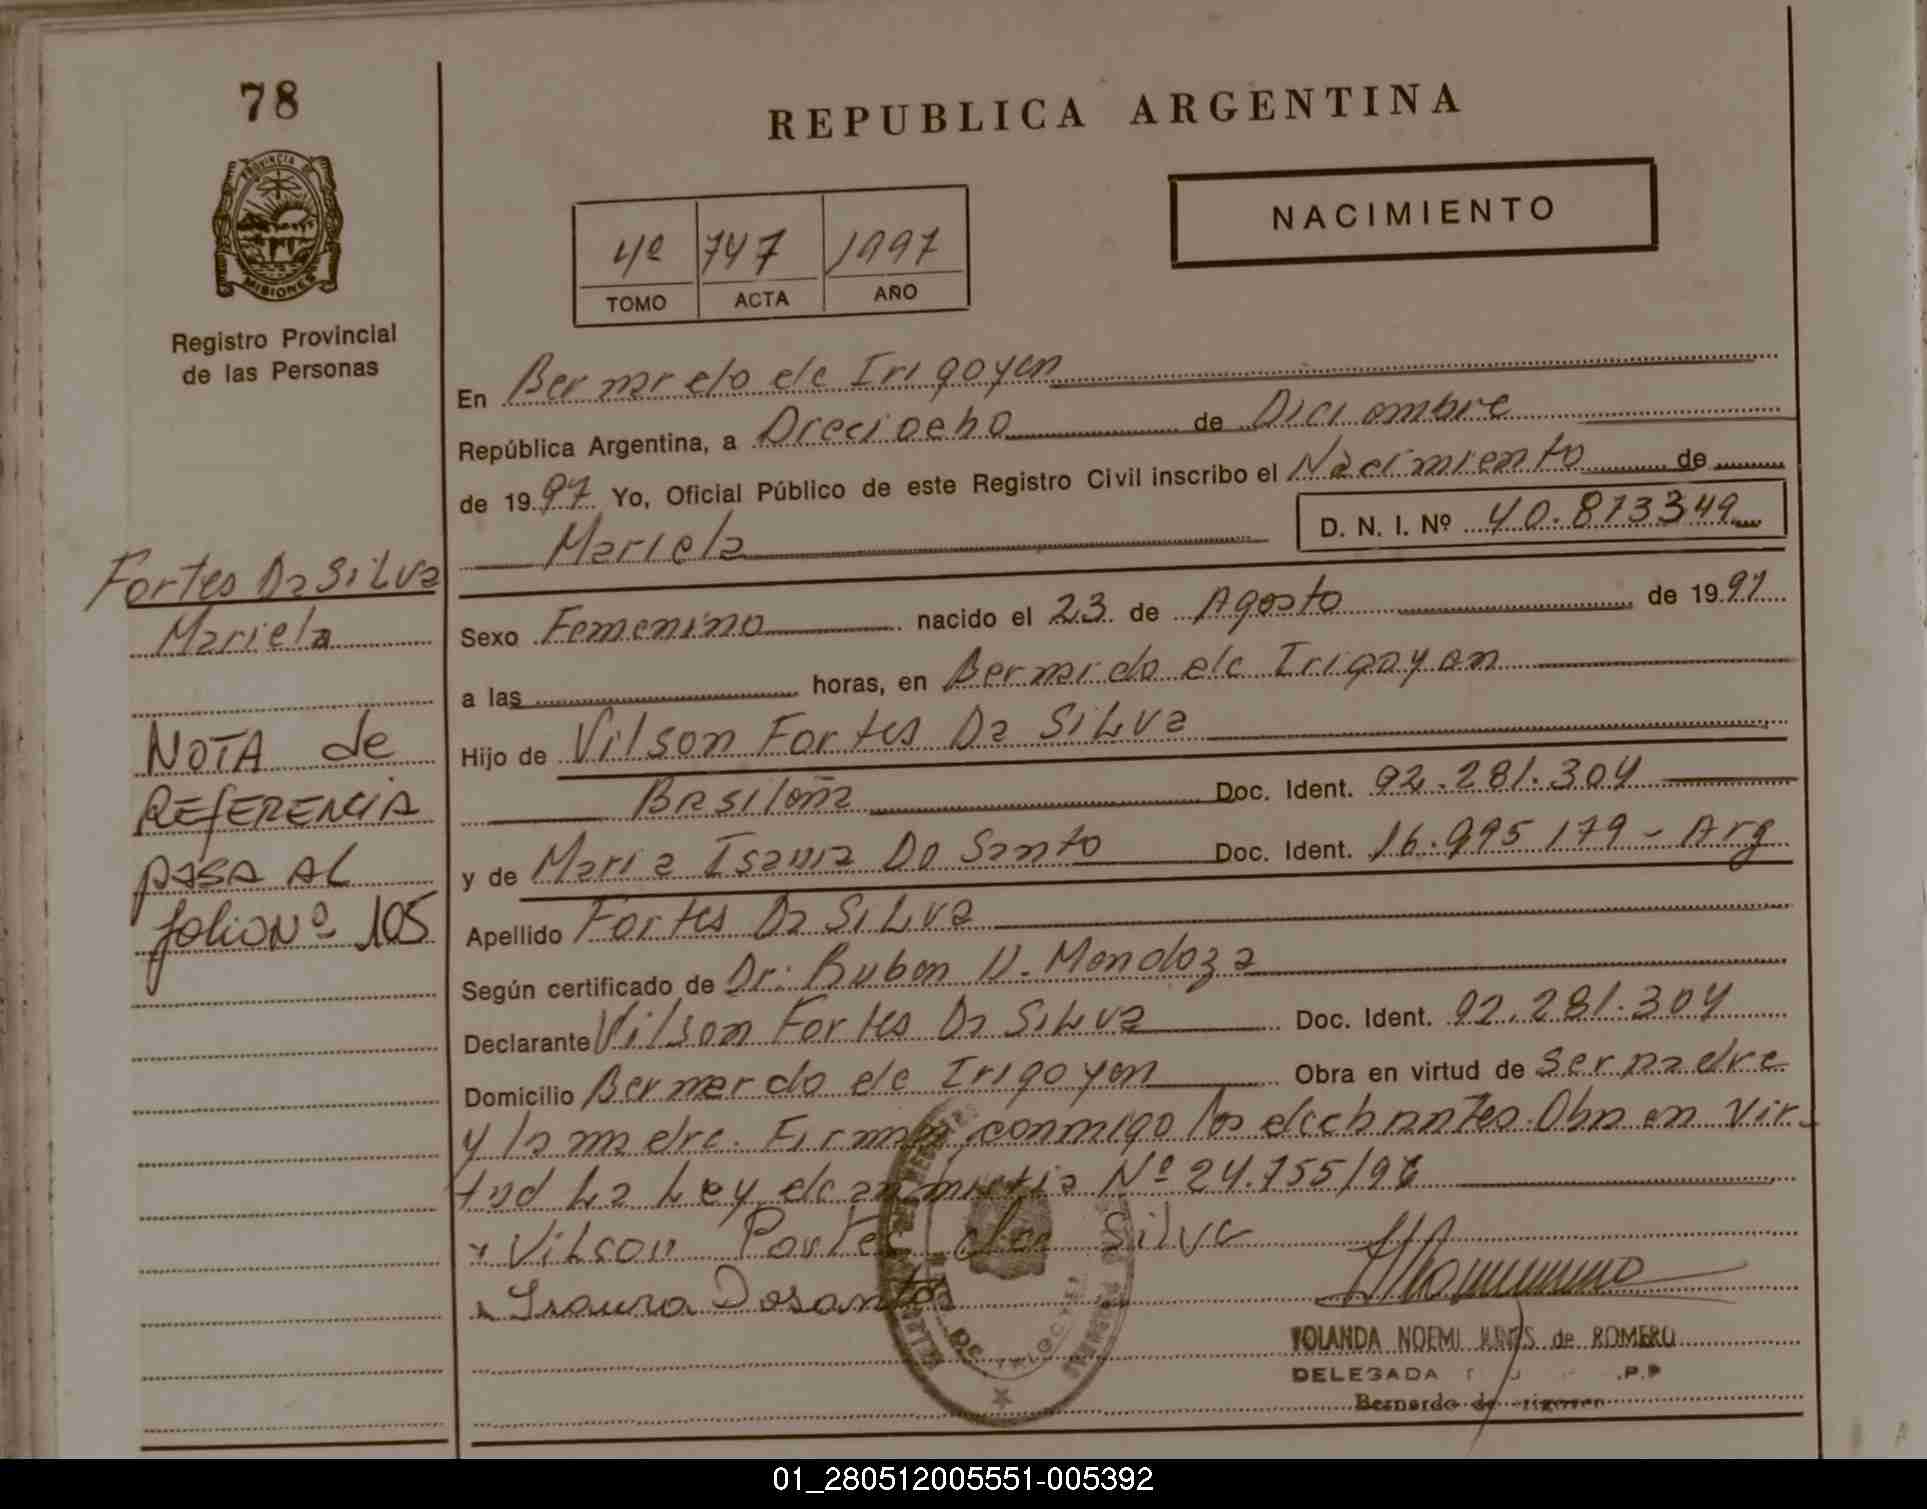 78
REPUBLICA ARGENTINA
PROVINCIA DE
MISIONES
NACIMIENTO
4º 747 1997
TOMO ACTA AÑO
Registro Provincial
de las Personas
En Bernardo de Irigoyen
República Argentina, a Diecioeho de Diciembre
de 1997 Yo, Oficial Público de este Registro Civil inscribo el Nacimiento de
Mariela D. N. I. Nº 40.873349
Fortes Da Silva
Mariela
Sexo Femenino nacido el 23 de Agosto de 1997
a las horas, en Bernardo de Irigoyen
NOTA de
REFERENCIA
PASA AL
folio Nº 105
Hijo de Vilson Fortes Da Silva
Brsileña Doc. Ident. 92.281.304
y de Maria Isaura Do Santo Doc. Ident. 16.995 179 - Arg
Apellido Fortes Da Silva
Según certificado de Dr. Ruben D. Mendoza
Declarante Vilson Fortes Da Silva Doc. Ident. 92.281.304
Domicilio Bernardo de Irigoyen Obra en virtud de Ser padre
y la madre. Firman conmigo los declarantes. Obra en Vir-
tud La Ley de amnistia Nº 24.755/96
x Vilson Portes da Silva
x Isaura Dosantos
YOLANDA NOEMI de ROMERO
DELEGADA P.P
Bernardo de Irigoyen
01_280512005551-005392